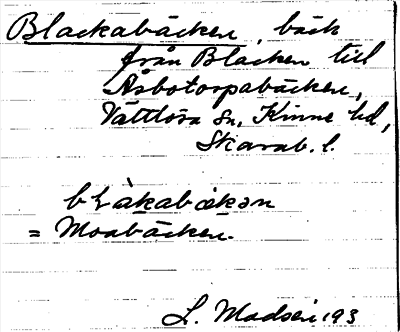 Blackabäcken, bäck
från Blacken till
Åsbotorpabäcken,
Vättlösa sn, Kinne hd,
Skarab. l.
bɫàkabækən
= Moabäcken.
L. Madsen 193